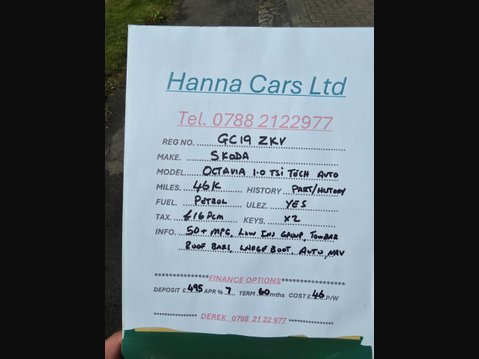 Hanna Cars Ltd
Tel. 0788 2122977
REG NO. GC19 ZKV
MAKE. SKODA
MODEL. OCTAVIA 1.0 TSi TECH AUTO
MILES. 46K HISTORY PART/HISTORY
FUEL. PETROL ULEZ. YES
TAX. £16 PCM KEYS. X2
INFO. 50+ MPG, LOW INS GROUP, TOWBAR
ROOF BARS, LARGE BOOT, AUTO, NAV
****************FINANCE OPTIONS****************
DEPOSIT £ 495 APR % 7 TERM 60 mths COST £ 46 P/W
**************** DEREK 0788 21 22 977 ****************